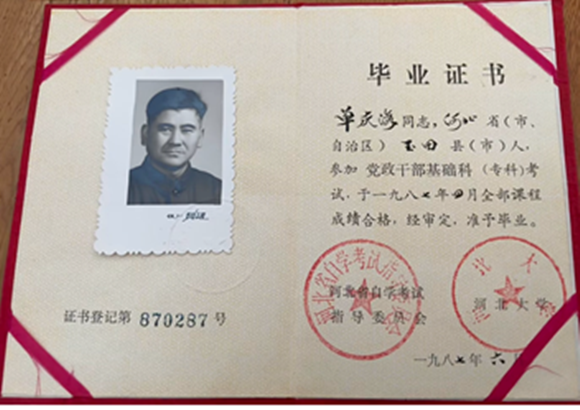 证书登记第 870287 号
毕业证书
单庆海同志，河北省（市、
自治区）玉田县（市）人，
参加 党政干部基础科（专科）考
试，于一九八七年四月全部课程
成绩合格，经审定，准予毕业。
河北省自学考试指导委员会
河北省自学考试
指导委员会
河北大学
河北大学
一九八七年六月